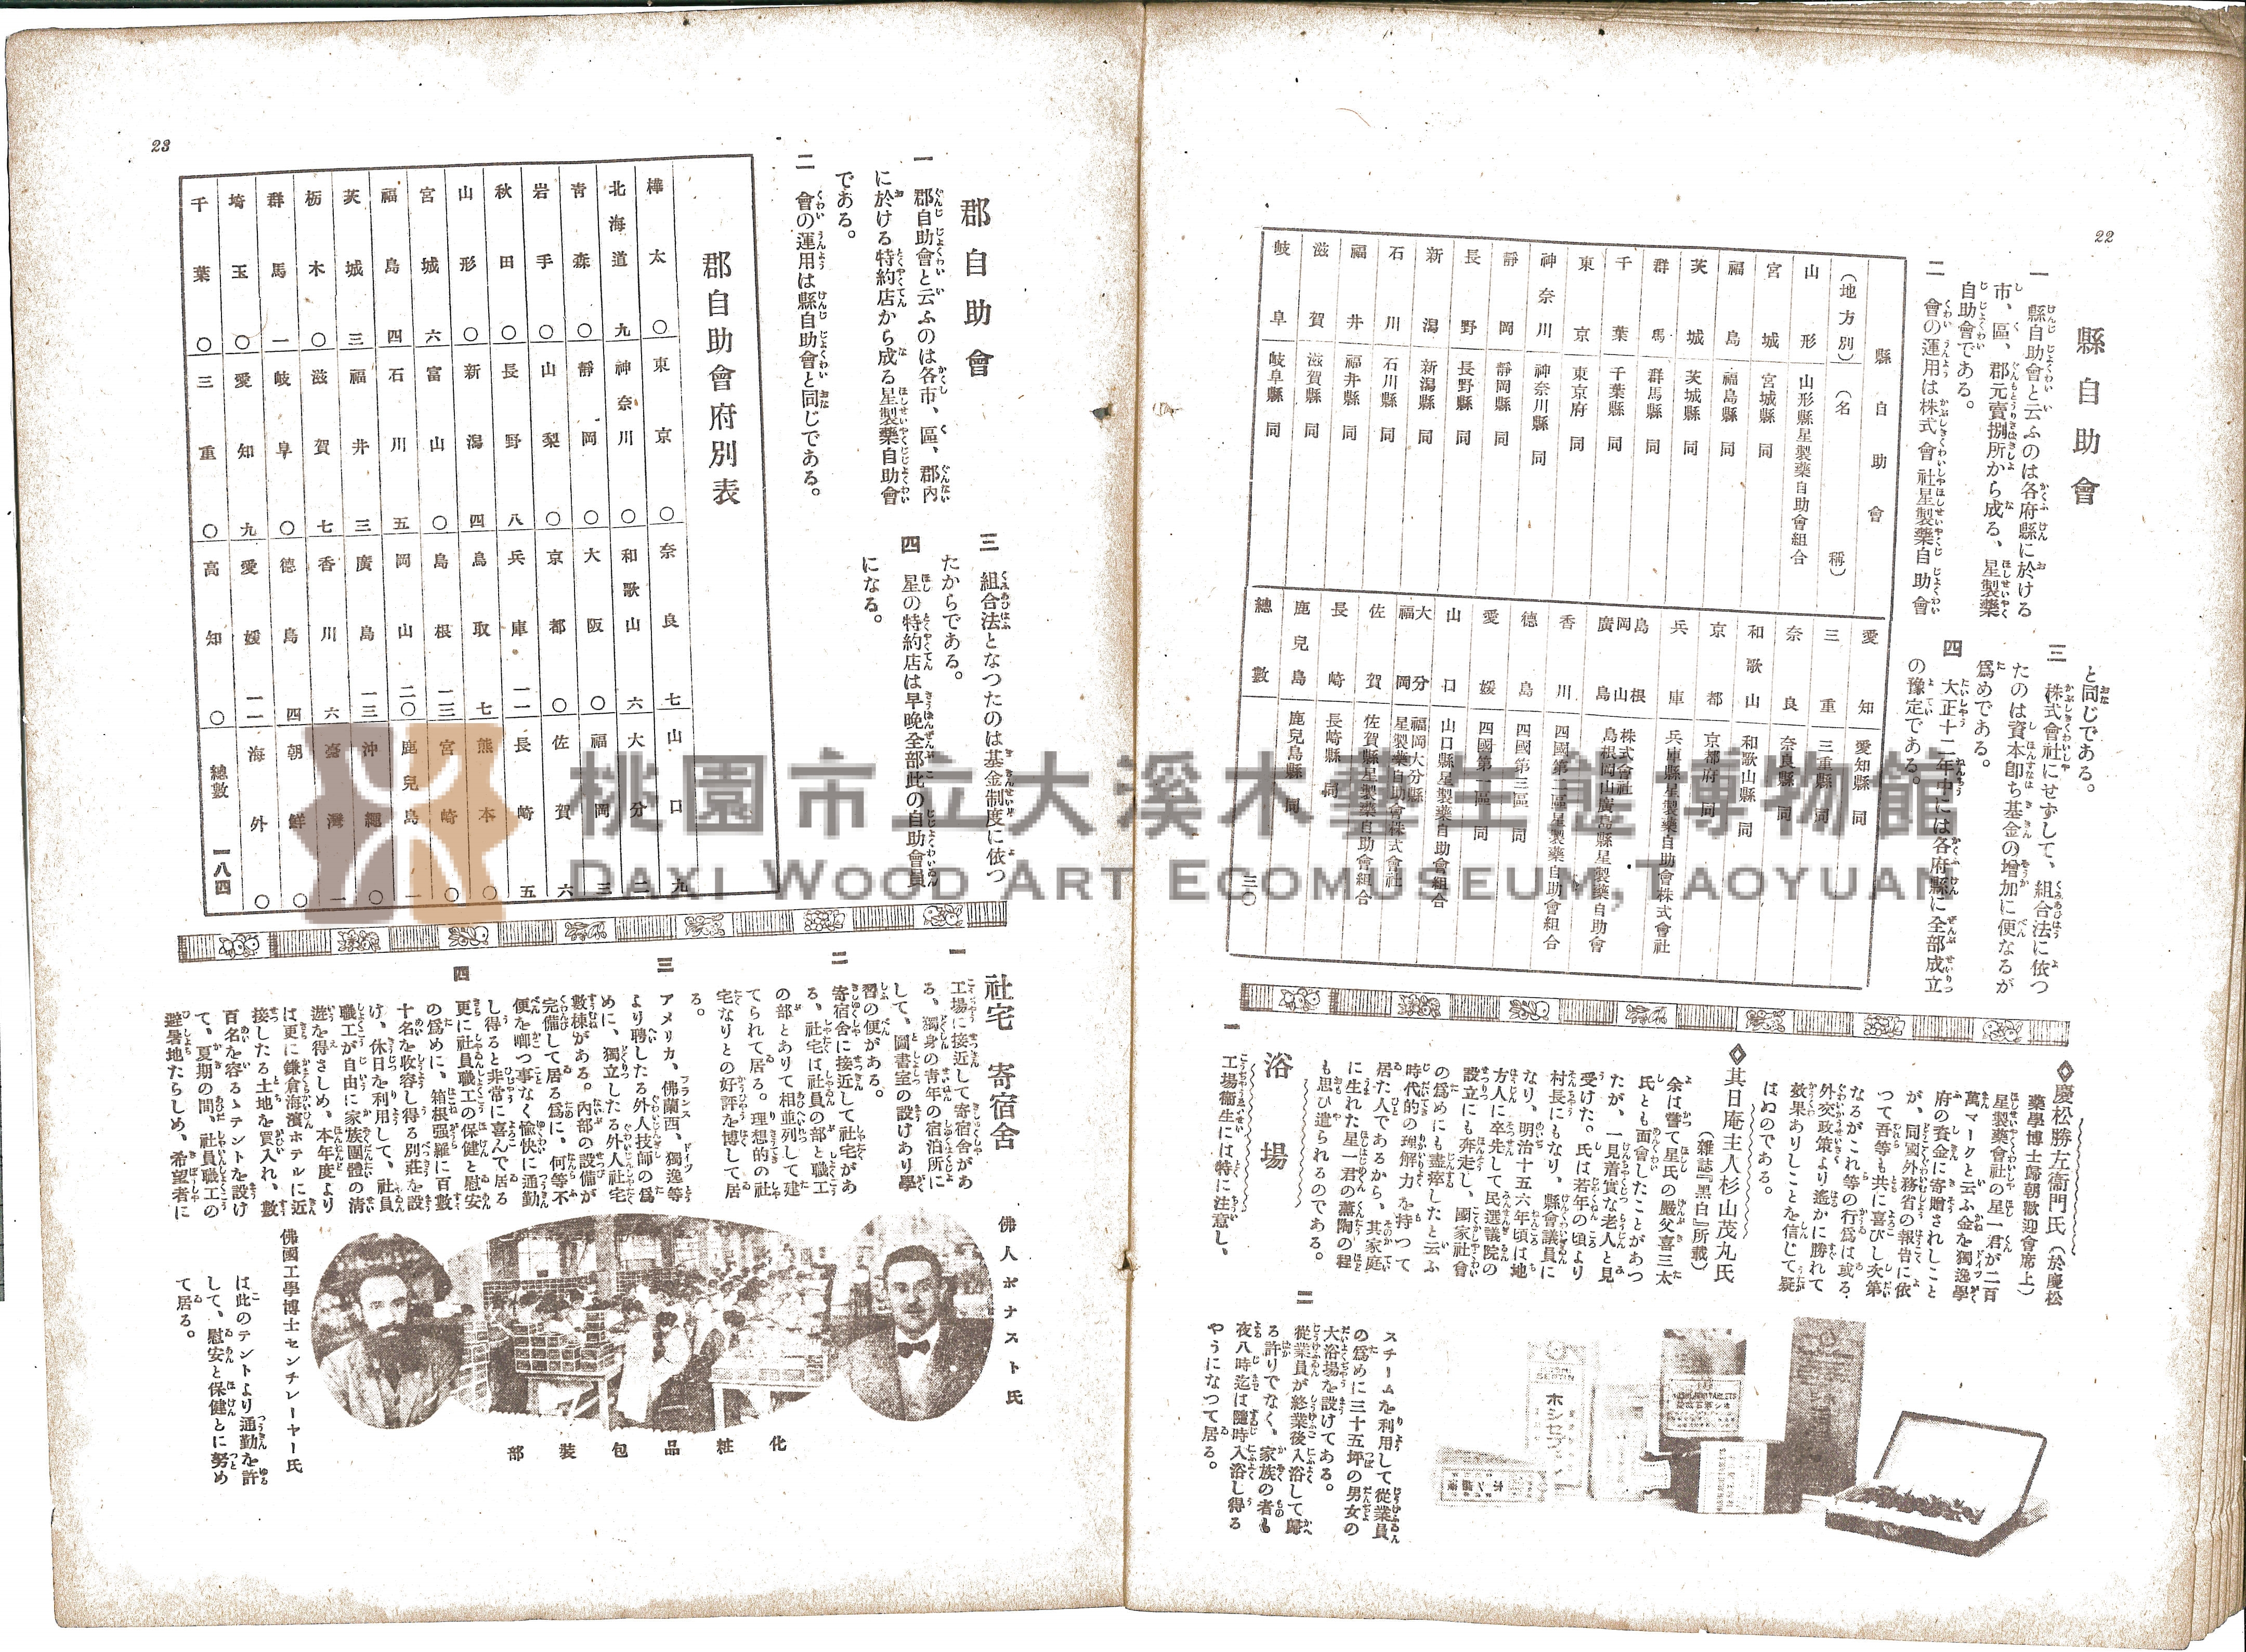 22
縣自助會
一 縣自助會と云ふのは各府縣に於ける
市、區、郡元賣捌所から成る、星製藥
自助會である。
二 會の運用は株式會社星製藥自助會
と同じである。
三 株式會社にせずして、組合法に依つ
たのは資本卽ち基金の增加に便なるが
爲めである。
四 大正十二年中には各府縣に全部成立
の豫定である。
縣自助會
(地方別) (名稱)
山形 山形縣星製藥自助會組合
宮城 宮城縣同
福島 福島縣同
茨城 茨城縣同
群馬 群馬縣同
千葉 千葉縣同
東京 東京府同
神奈川 神奈川縣同
靜岡 靜岡縣同
長野 長野縣同
新潟 新潟縣同
石川 石川縣同
福井 福井縣同
滋賀 滋賀縣同
岐阜 岐阜縣同
愛知 愛知縣同
三重 三重縣同
奈良 奈良縣同
和歌山 和歌山縣同
京都 京都府同
兵庫 兵庫縣星製藥自助會株式會社
島根岡山廣島 株式會社島根岡山廣島縣星製藥自助會
香川 四國第二區星製藥自助會組合
德島 四國第三區同
愛媛 四國第一區同
山口 山口縣星製藥自助會組合
大分福岡 福岡大分縣星製藥自助會株式會社
佐賀 佐賀縣星製藥自助會組合
長崎 長崎縣同
鹿兒島 鹿兒島縣同
總數 三〇
◇慶松勝左衞門氏(於慶松
藥學博士歸朝歡迎會席上)
星製藥會社の星一君が二百
萬マークと云ふ金を獨逸學
府の資金に寄贈されしこと
が、同國外務省の報告に依
つて吾等も共に喜びし次第
なるがこれ等の行爲は或る
外交政策より遙かに勝れて
效果ありしことを信じて疑
はぬのである。
◇其日庵主人杉山茂丸氏
(雜誌『黑白』所載)
余は嘗て星氏の嚴父喜三太
氏とも面會したことがあつ
たが、一見着實な老人と見
受けた。氏は若年の頃より
村長にもなり、縣會議員に
なり、明治十五六年頃は地
方人に卒先して民選議院の
設立にも奔走し、國家社會
の爲めにも盡瘁したと云ふ
時代的の理解力を持つて
居た人であるから、其家庭
に生れた星一君の薰陶の程
も思ひ遣られるのである。
浴場
一 工場衞生には特に注意し、
スチームを利用して從業員
の爲めに三十五坪の男女の
大浴場を設けてある。
二 從業員が終業後入浴して歸
る許りでなく、家族の者も
夜八時迄は隨時入浴し得る
やうになつて居る。
ホシセプチン
23
郡自助會
一 郡自助會と云ふのは各市、區、郡內
に於ける特約店から成る星製藥自助會
である。
二 會の運用は縣自助會と同じである。
三 組合法となつたのは基金制度に依つ
たからである。
四 星の特約店は早晩全部此の自助會員
になる。
郡自助會府別表
樺太 〇 東京 〇 奈良 七 山口 九
北海道 九 神奈川 〇 和歌山 六 大分 二
靑森 〇 靜岡 〇 大阪 〇 福岡 三
岩手 〇 山梨 〇 京都 〇 佐賀 六
秋田 〇 長野 八 兵庫 一一 長崎 五
山形 〇 新潟 四 鳥取 七 熊本 〇
宮城 六 富山 〇 島根 一三 宮崎 〇
福島 四 石川 五 岡山 二〇 鹿兒島 一
茨城 三 福井 三 廣島 一三 沖繩 〇
栃木 〇 滋賀 七 香川 六 臺灣 一
群馬 一 岐阜 〇 德島 四 朝鮮 〇
埼玉 〇 愛知 九 愛媛 一一 海外 〇
千葉 〇 三重 〇 高知 〇 總數 一八四
社宅 寄宿舍
一 工場に接近して寄宿舍があ
る、獨身の靑年の宿泊所に
して、圖書室の設けあり學
習の便がある。
二 寄宿舍に接近して社宅があ
る、社宅は社員の部と職工
の部とありて相並列して建
てられて居る。理想的の社
宅なりとの好評を博して居
る。
三 アメリカ、佛蘭西、獨逸等
より聘したる外人技師の爲
めに、獨立したる外人社宅
數棟がある。內部の設備が
完備して居る爲に、何等不
便を唧つ事なく愉快に通勤
し得ると非常に喜んで居る
四 更に社員職工の保健と慰安
の爲めに、箱根强羅に百數
十名を收容し得る別莊を設
け、休日を利用して、社員
職工が自由に家族團體の淸
遊を得さしめ、本年度より
は更に鎌倉海濱ホテルに近
接したる土地を買入れ、數
百名を容るゝテントを設け
て、夏期の間、社員職工の
避暑地たらしめ、希望者に
は此のテントより通勤を許
して、慰安と保健とに努め
て居る。
佛人ボナスト氏
化粧品包裝部
佛國工學博士センチレーヤー氏
桃園市立大溪木藝生態博物館
DAXI WOOD ART ECOMUSEUM, TAOYUAN